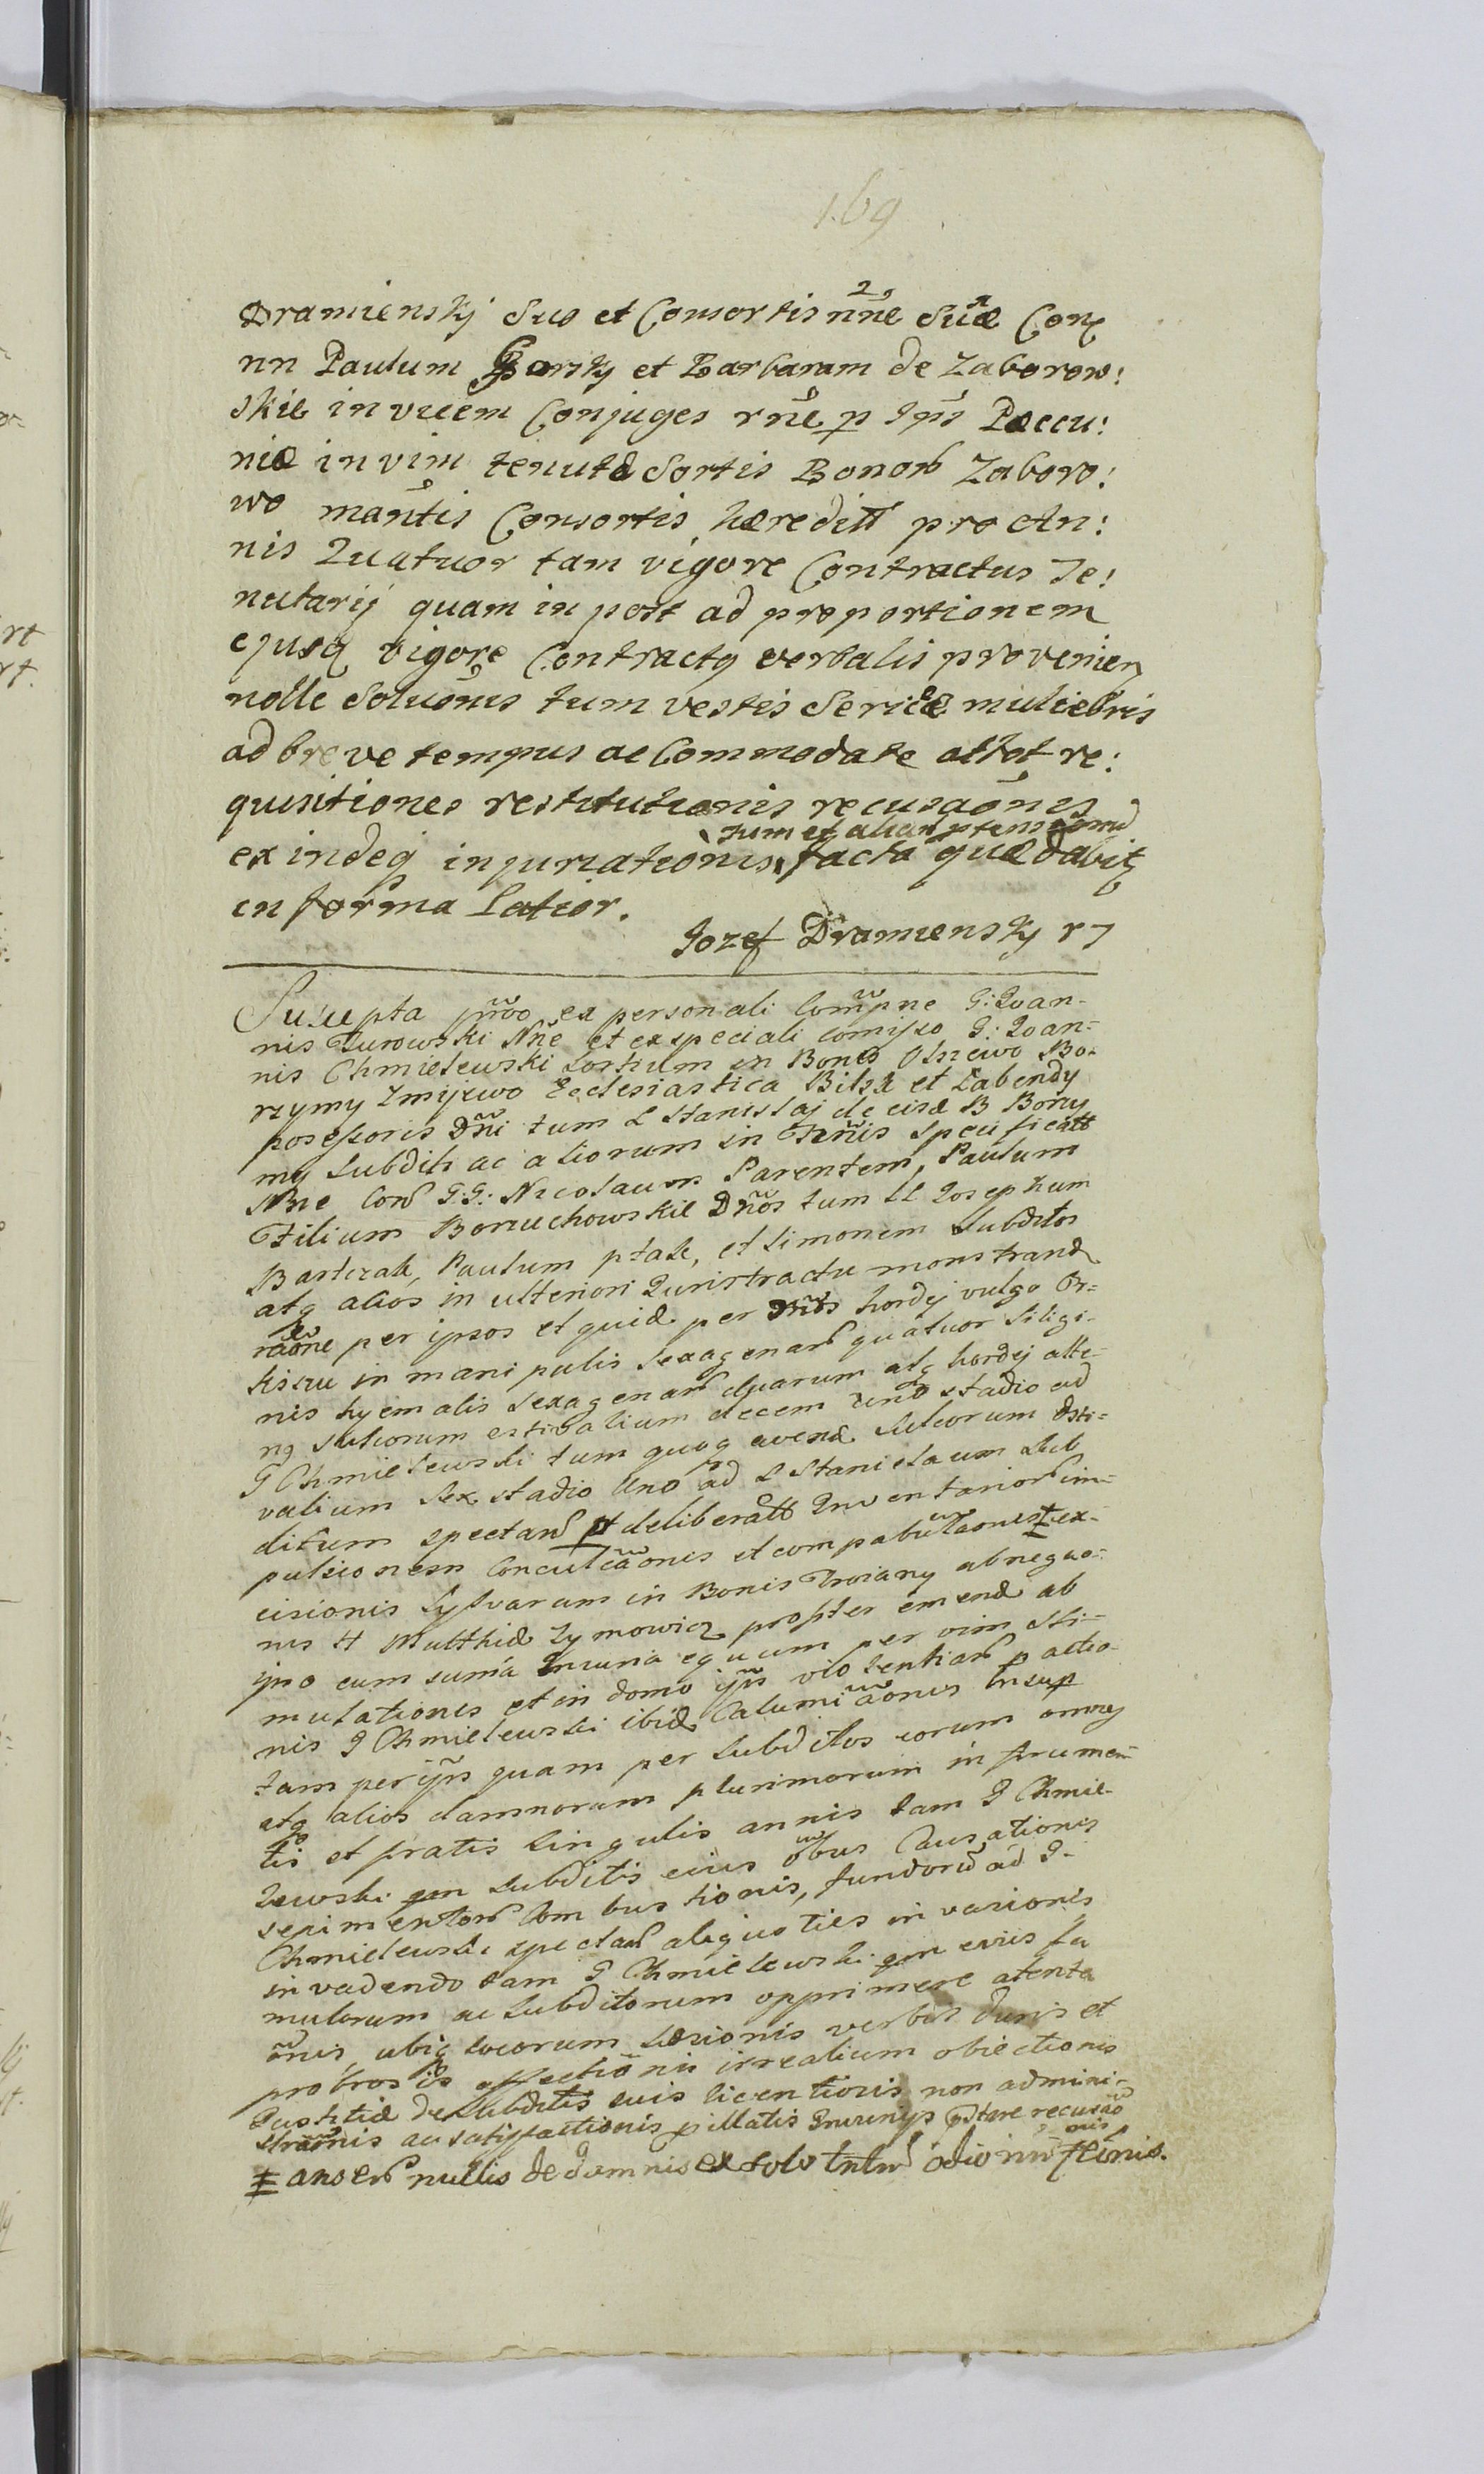 169
Dramiensky suo et Consortis nn̄e suæ Con
nn Paulum Gorsky et Barbaram de Zaborow:
skie invicem Conjuges rn̄e p Ips Pæccu:
niæ in vim tenutæ Sortis Bonor Zaboro:
wo man̄tis Consortis hæreditt pro An:
nis Quatuor tam vigore Contractus Te:
nutarij quam in post ad proportionem
ejusq vigore Contractq verbalis provenien
nolle soluōnis tum vestis Sericæ muliebris
ad breve tempus accommodate attot re:
quisitiones restitutionis recusaōnis
tum et aliar
exindeq injuriationis facta quæ dabit
in forma Latior.
Jozef Dramiensky
Suscepta pr̄vo ex personali Comp̄ne G: Joan-
nis Turowski Nn̄e et ex speciali comisso G: Joan=
nis Chmielewski Sortium in Bonis Olszewo Bo-
rzymy Zmijewo Ecclesiastica Bilsk et Labendy
possessoris Dn̄i tum L Stanislaj de eisd B Borzy
my Subditi ac aliorum in Term̄is specificatt
Nn̄e Con G:G: Nicolaum Parentem, Paulum
Filium Borzuchowskie Dn̄os tum LL Josephum
Bartczak, Paulum ptak, et Simonem Subditos
atq alios in ulteriori Juristractu monstrand
rāone per ipsos et quid per Dn̄os hordej vulgo Or=
kiszu in manipulis sexagenar quatuor siligi-
nis hyemalis sexagenar duarum atq hordej alte-
nq sulcorum estivalium decem uno stadio ad
G Chmielewski tum quoq avenæ sulcorum Esti=
valium sex stadio uno ad L Stanislaum Sub
ditum spectan deliberatt Inventarior im=
pulsionem Conculcāonis et compabulāonis ex-
cisionis Sylvarum in Bonis Troiany abnegao-
nis H Matthiæ Zymowicz propter emend ab
ipso cum suma Iniuria equum per vim Sti-
mulationis et in domo ip̄s violentiar p actio-
nis G Chmielewski ibid Calumniāonis Insup
tam per ip̄s quam per Subditos eorum omnes
atq alios damnorum plurimorum in frumen=
tis et pratis singulis annis tam G Chmie-
lewski qm subditis eius ōbus Causationis
sepimentor Combustionis, fundorū ad G-
Chmielewski spectan aliquoties invasionis
invadendo tam G Chmielewski qm eviis fa
mulorum ac Subditorum opprimere atenta
ōnis ubiq locorum Læsionis verbis duris et
probrosis affectionis irrealium obiectionis
Justitiæ de subditis suis licentiosis non admini-
strāonis ac satisfactionis p illatis Iniurijs recusāo
onis
≠ anser nullis de damnis ex solo odio